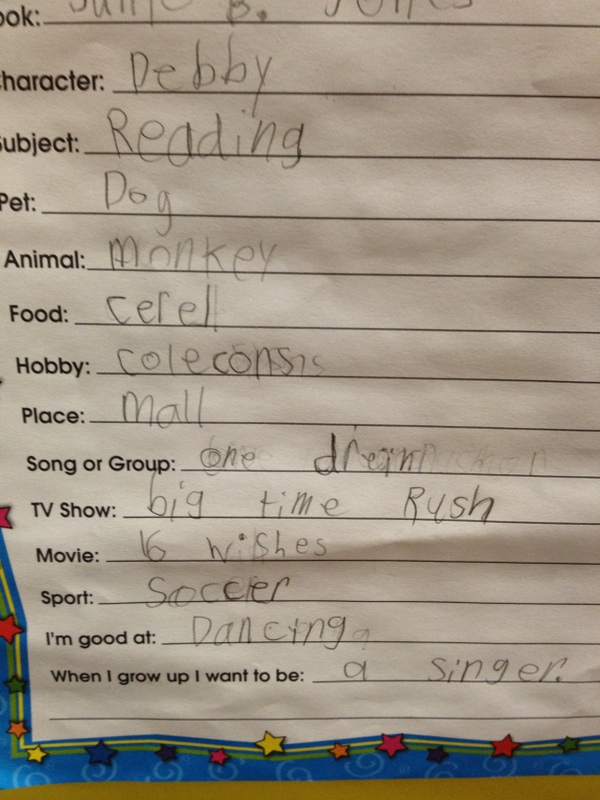 ook: Junie B. Jones
haracter: Debby
ubject: Reading
Pet: Dog
Animal: Monkey
Food: cerell
Hobby: coleconsis
Place: Mall
Song or Group: one dream
TV Show: big time Rush
Movie: 16 wishes
Sport: Soccer
I'm good at: Dancing
When I grow up I want to be: a singer.